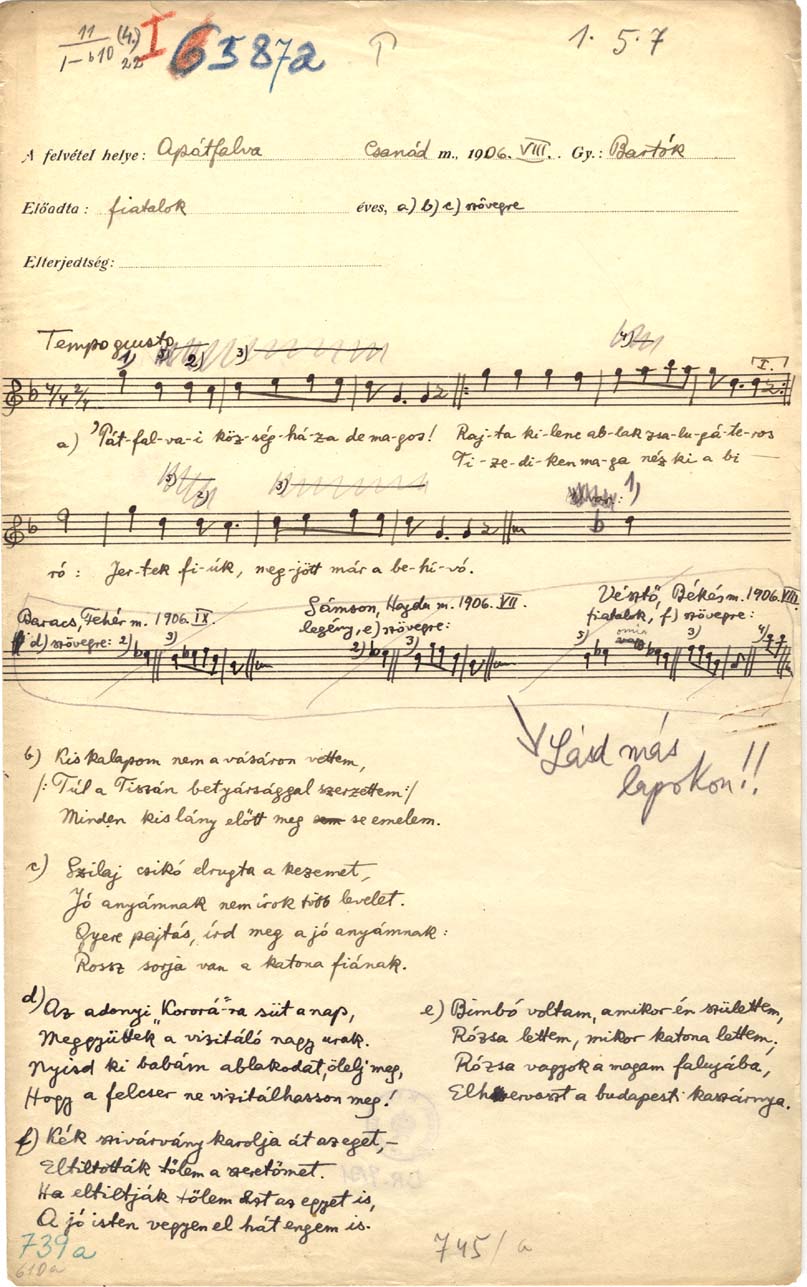 11 (4.) I 6587a 1. 5. 7
I-b10 22
A felvétel helye: Apátfalva Csanád m., 1906. VIII. Gy.: Bartók
Előadta: fiatalok éves, a) b) c) szövegre
Elterjedtség:
Tempo giusto
1) 2) 3) 4)
4/4 2/4 I.
a) 'Pát-fal-va-i köz-ség-há-za de ma-gos! Raj-ta ki-lenc ab-lak zsa-lu-gá-te-ros
Ti-ze-di-ken ma-ga néz ki a bi-
3) 2) 3) 1)
ró: Jer-tek fi-úk, meg-jött már a be-hí-vó.
Baracs, Fehér m. 1906. IX. Sámson, Hajdu m. 1906. VII. Vésztő, Békés m. 1906. VIII.
d) szövegre: 2) 3) legény, e) szövegre: 2) 3) fiatalok, f) szövegre: 3) 3) 4)
Lásd más
lapokon!!
b) Kis kalapom nem a vásáron vettem,
/: Túl a Tiszán betyársággal szerzettem :/
Minden kis lány előtt meg se emelem.
c) Szilaj csikó elrugta a kezemet,
Jó anyámnak nem irok több levelet.
Gyere pajtás, írd meg a jó anyámnak:
Rossz sorja van a katona fiának.
d) Az adonyi „Kororá"-ra süt a nap,
Meggyüttek a vizitáló nagy urak.
Nyisd ki babám ablakodat, ölelj meg,
Hogy a felcser ne vizitálhasson meg!
e) Bimbó voltam, amikor én születtem,
Rózsa lettem, mikor katona lettem;
Rózsa vagyok a magam falujába,
Elhervaszt a budapesti kaszárnya.
f) Kék szivárvány karolja át az eget,–
Eltiltották tőlem a szeretőmet.
Ha eltiltják tőlem azt az egyet is,
A jó isten vegyen el hát engem is.
739a 745/a
610a